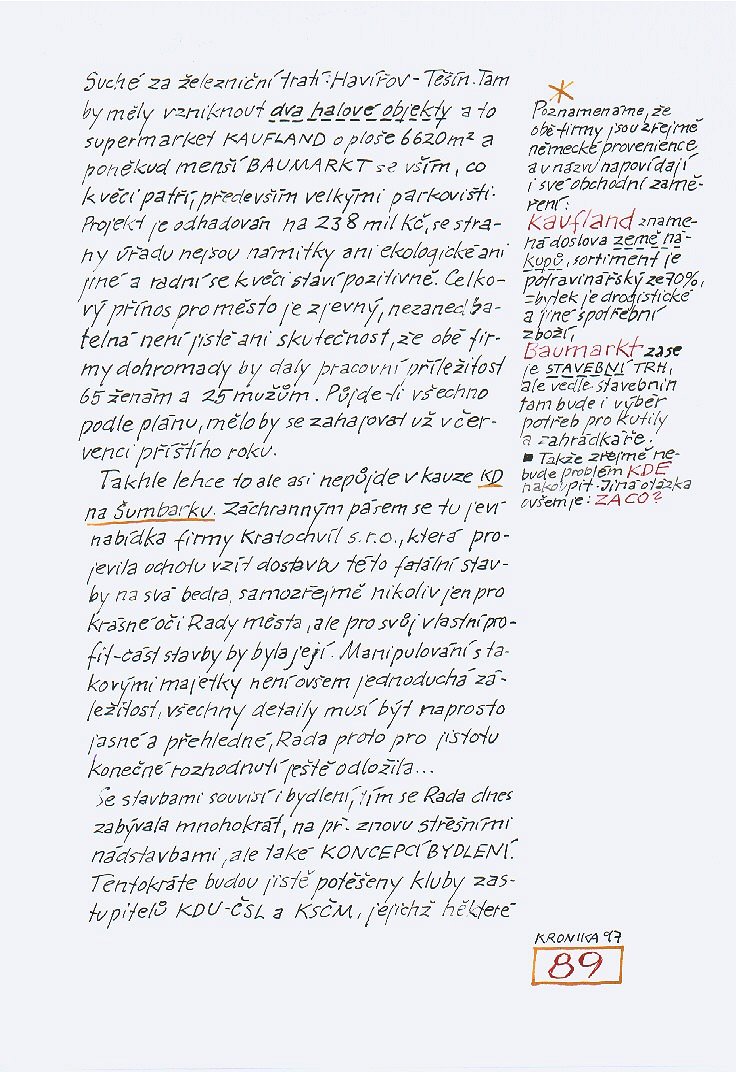 Suché za železniční tratí Havířov - Těšín. Tam
by měly vzniknout dva halové objekty a to
supermarket KAUFLAND o ploše 6620 m² a
poněkud menší BAUMARKT se vším, co
k věci patří, především velkými parkovišti.
Projekt je odhadován na 238 mil Kč, se stra-
ny úřadu nejsou námitky ani ekologické ani
jiné a radní se k věci staví pozitivně. Celko-
vý přínos pro město je zjevný, nezanedba-
telná není jistě ani skutečnost, že obě fir-
my dohromady by daly pracovní příležitost
65 ženám a 25 mužům. Půjde-li všechno
podle plánu, mělo by se zahajovat už v čer-
venci příštího roku.
Takhle lehce to ale asi nepůjde v kauze KD
na Šumbarku. Záchranným pásem se tu jeví
nabídka firmy Kratochvíl s.r.o., která pro-
jevila ochotu vzít dostavbu této fatální stav-
by na svá bedra, samozřejmě nikoliv jen pro
krásné oči Rady města, ale pro svůj vlastní pro-
fit-část stavby by byla její. Manipulování s ta-
kovými majetky není ovšem jednoduchá zá-
ležitost, všechny detaily musí být naprosto
jasné a přehledné, Rada proto pro jistotu
konečné rozhodnutí ještě odložila...
Se stavbami souvisí i bydlení, tím se Rada dnes
zabývala mnohokrát, na př. znovu střešními
nádstavbami, ale také KONCEPCÍ BYDLENÍ.
Tentokráte budou jistě potěšeny kluby zas-
tupitelů KDU-ČSL a KSČM, jejichž některé
*
Poznamenáme, že
obě firmy jsou zřejmě
německé provenience
a v názvu napovídají
i své obchodní zamě-
ření:
Kaufland zname-
ná doslova země ná-
kupů, sortiment je
potravinářský ze 70%,
zbytek je drogistické
a jiné spotřební
zboží,
Baumarkt zase
je STAVEBNÍ TRH,
ale vedle stavebnin
tam bude i výběr
potřeb pro kutily
a zahrádkáře.
■ Takže zřejmě ne-
bude problém KDE
nakoupit. Jiná otázka
ovšem je: ZA CO?
KRONIKA 97
89